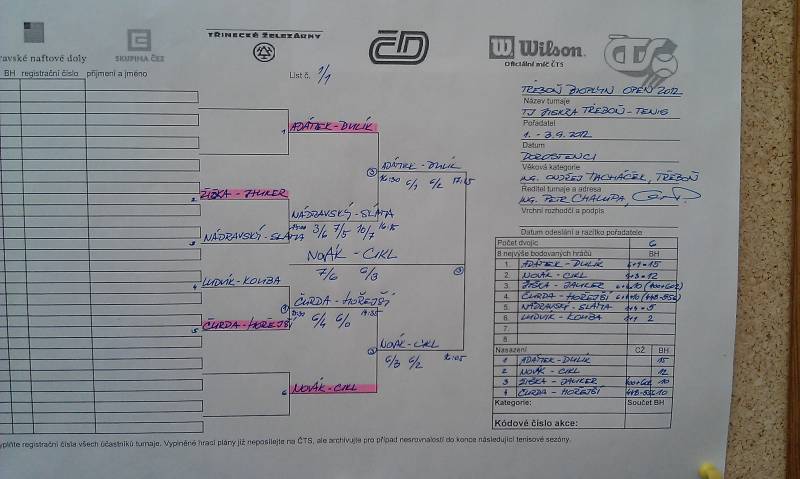 TŘINECKÉ ŽELEZÁRNY
ravské naftové doly
SKUPINA ČEZ
ČD
Wilson.
Oficiální míč ČTS
ČTS
BH registrační číslo příjmení a jméno
List č. 1/1
TŘEBOŇ OPEN 2012
Název turnaje
TJ JISKRA TŘEBOŇ - TENIS
Pořadatel
1. - 3.9.2012
Datum
DOROSTENCI
Věková kategorie
ING. ONDŘEJ TACHÁČEK, TŘEBOŇ
Ředitel turnaje a adresa
ING. PETR CHALUPA,
Vrchní rozhodčí a podpis
Datum odeslání a razítko pořadatele
1 ADÁTEK - DULÍK
2 ŽIŠKA - JAUKER
3 NÁDRAVSKÝ - SLÁMA
4 LUDVÍK - KOUBA
5 ČURDA - HOŘEJŠÍ
6 NOVÁK - CIKL
NÁDRAVSKÝ - SLÁMA
3/6 7/5 10/7
ČURDA - HOŘEJŠÍ
6/4 6/0
ADÁTEK - DULÍK
16:30 6/1 6/2 17:15
NOVÁK - CIKL
6/3 6/2 16:05
NOVÁK - CIKL
7/6 6/3
Počet dvojic 6
8 nejvýše bodovaných hráčů BH
1. ADÁTEK - DULÍK 6+9=15
2. NOVÁK - CIKL 9+3=12
3. ŽIŠKA - JAUKER
4. ČURDA - HOŘEJŠÍ
5. NÁDRAVSKÝ - SLÁMA 1+4=5
6. LUDVÍK - KOUBA 1+1 2
7.
8.
Nasazení CŽ BH
1 ADÁTEK - DULÍK 15
2 NOVÁK - CIKL 12
3 ŽIŠKA - JAUKER 10
4 ČURDA - HOŘEJŠÍ 10
Kategorie: Součet BH
Kódové číslo akce:
yplňte registrační čísla všech účastníků turnaje. Vyplněné hrací plány již neposílejte na ČTS, ale archivujte pro případ nesrovnalostí do konce následující tenisové sezóny.